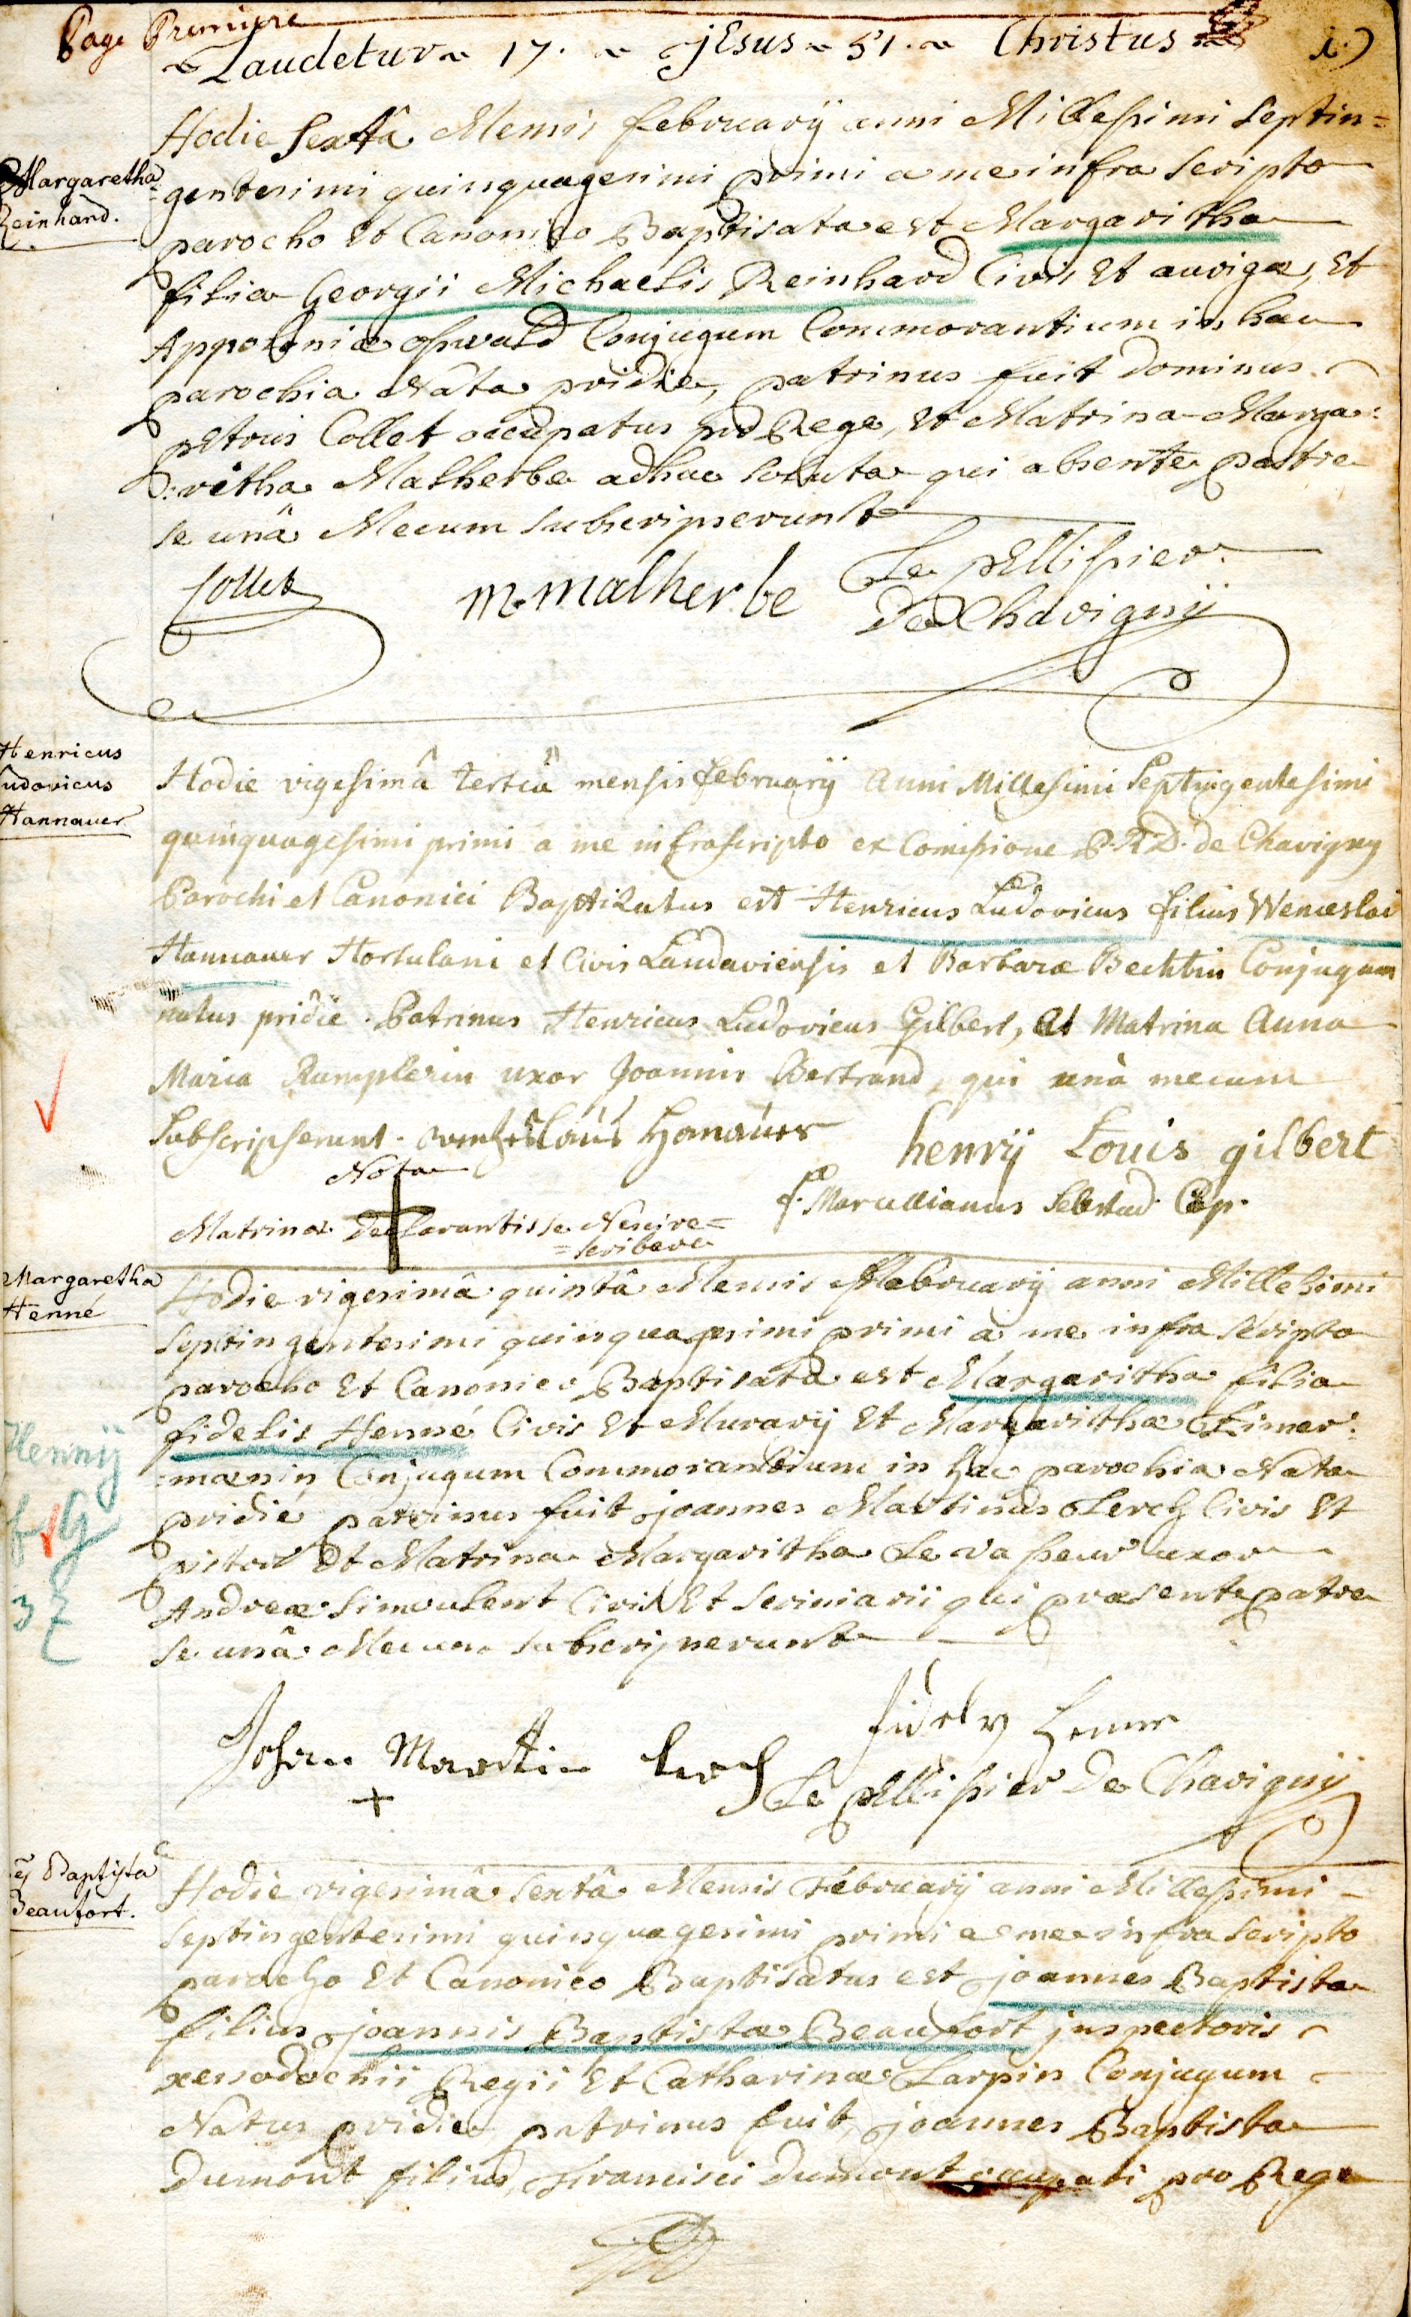 Page Premiere
Laudetur 17. Jesus 51. Christus 1.)
Hodie Sextâ Mensis februarÿ anni Millesimi Septin=
Margaretha
Reinhard.
gentesimi quinquagesimi primi a me infra scripto
parocho Et Canonico Baptisata est Margaritha
filia Georgii Michaelis Reinhard Civis Et aurigæ, Et
Appoloniæ oswald Conjugum Commorantium in hac
parochia Nata pridie, patrinus fuit dominus
petrus Collet occupatus pro Rege, et Matrina Marga=
=ritha Malherbe adhuc soluta qui absente patre
se unâ Mecum subscripserunt
Collet m. malherbe Le pellissier
De Chavignÿ
Henricus
Ludovicus
Hannauer
Hodie vigesimâ tertiâ mensis februarÿ Anni Millesimi Septingentesimi
quinquagesimi primi a me infrascripto ex Comissione P.R.D. de Chavigny
Parochi et Canonici Baptizatus est Henricus Ludovicus filius Wenceslai
Hannauer Hortulani et Civis Landaviensis et Barbaræ Bechtin Conjugum
natus pridie. Patrinus Henricus Ludovicus Gilbert, et Matrina Anna
Maria Rumplerin uxor Joannis Bertrand, qui unà mecum
Subscripserunt. Honauer henrÿ Louis gilbert
Nota
f. Marcellianus Cap.
Matrina Declaravit se Nescire=
=scribere
Margaretha
Henné
Hodie vigesimâ quintâ Mensis februarÿ anni Millesimi
Septingentesimi quinquagesimi primi a me infra scripto
parocho Et Canonico Baptisata est Margaritha filia
fidelis Henné Civis Et Murarÿ Et Margarithæ Zimer=
=mænin Conjugum Commorantium in hac parochia Nata
pridie patrinus fuit joannes Martinus Lerch Civis Et
pistor Et Matrina Margaritha Le Vasseur uxor
Andreæ Simculent Civis Et scriniarii qui præsente patre
se unâ Mecum subscripserunt
Hennÿ
fidely Henne
Johan Martin Lerch
+
Le pellissier De Chavignÿ
Baptista
Beaufort.
Hodie vigesimâ sextâ Mensis februarÿ anni Millesimi
Septingentesimi quinquagesimi primi a me infra scripto
parocho Et Canonico Baptisatus est joannes Baptista
filius joannis Baptistæ Beaufort jnspectoris
xenodochii Regii Et Catharinæ Larpin Conjugum
Natus pridie patrinus fuit joannes Baptista
Dumont filius Francisci Dumont occupati pro Rege